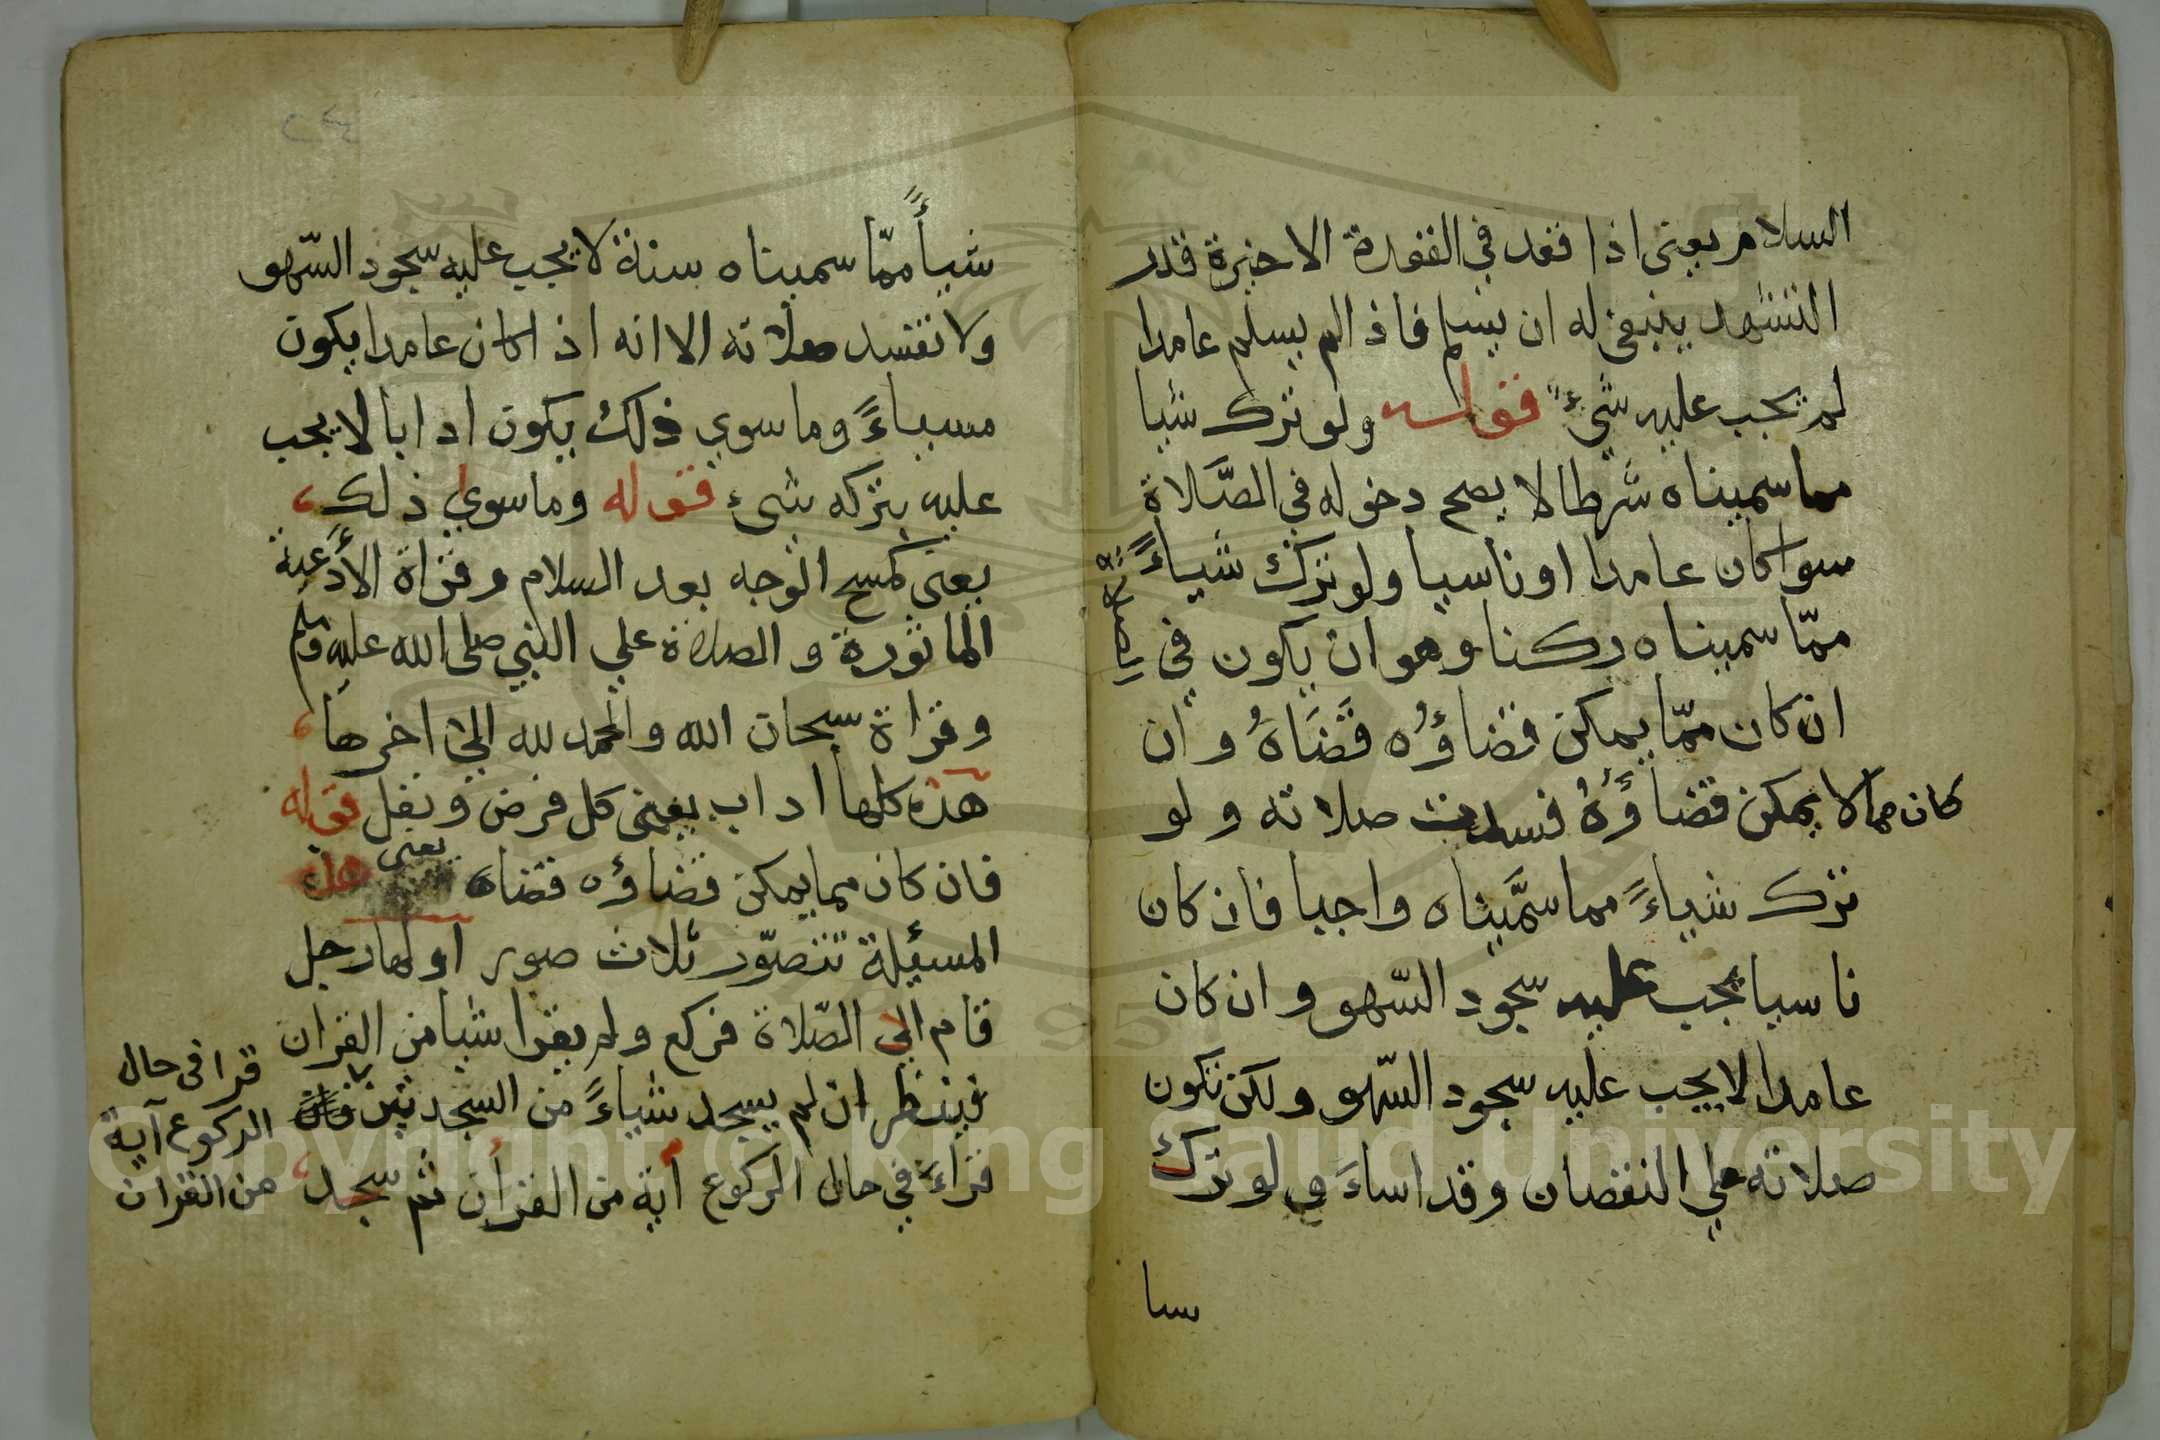 السلام يعني اذا قعد في القعدة الاخيرة قدر
التشهد ينبغي له ان يسلم فاذا لم يسلم عامدا
لم يجب عليه شيءٌ قوله ولو ترك شيا
مما سميناه شرطا لا يصح دخوله في الصَّلاة
سوا كان عامدا او ناسيا ولو ترك شياءً
ممّا سميناه ركنا وهو ان يكون في
ان كان ممّا يمكن قضاؤُه قَضَاهُ وان
كان مما لا يمكن قضاؤُهُ فسدت صلاته ولو
ترك شياءً مما سمَّيناه واجبا فان كان
ناسيا يجب عليه سجود السّهو وان كان
عامدا لا يجب عليه سجود السّهو ولكن تكون
صلاته علي النقصان وقد اساءَ ولو ترك
شيأً ممّا سميناه سنة لا يجب عليه سجود السّهو
ولا تفسد صلاته الا انه اذا كان عامدا يكون
مسياءً وما سوي ذلك يكون ادابا لا يجب
عليه بتركه شيء قوله وما سوي ذلك
يعني كمسح الوجه بعد السلام وقراة الأدعية
الماثورة والصلاة علي النبي صلى الله عليه وسلم
وقراة سبحان الله والحمد لله الي اخرها
هذه كلها اداب يعني كل فرض ونفل قوله
فان كان مما يمكن قضاؤه قضاه يعني هذه
المسئيلة تتصوّر ثلاث صور اولها رجل
قام الي الصّلاة فركع ولم يقرا شيا من القران
فينظر ان لم يسجد شياءً من السجدتين
قراءة في حال الركوع آية من القرأن ثم سجد
قرا في حال
الركوع آية
من القران
Copyright © King Saud University